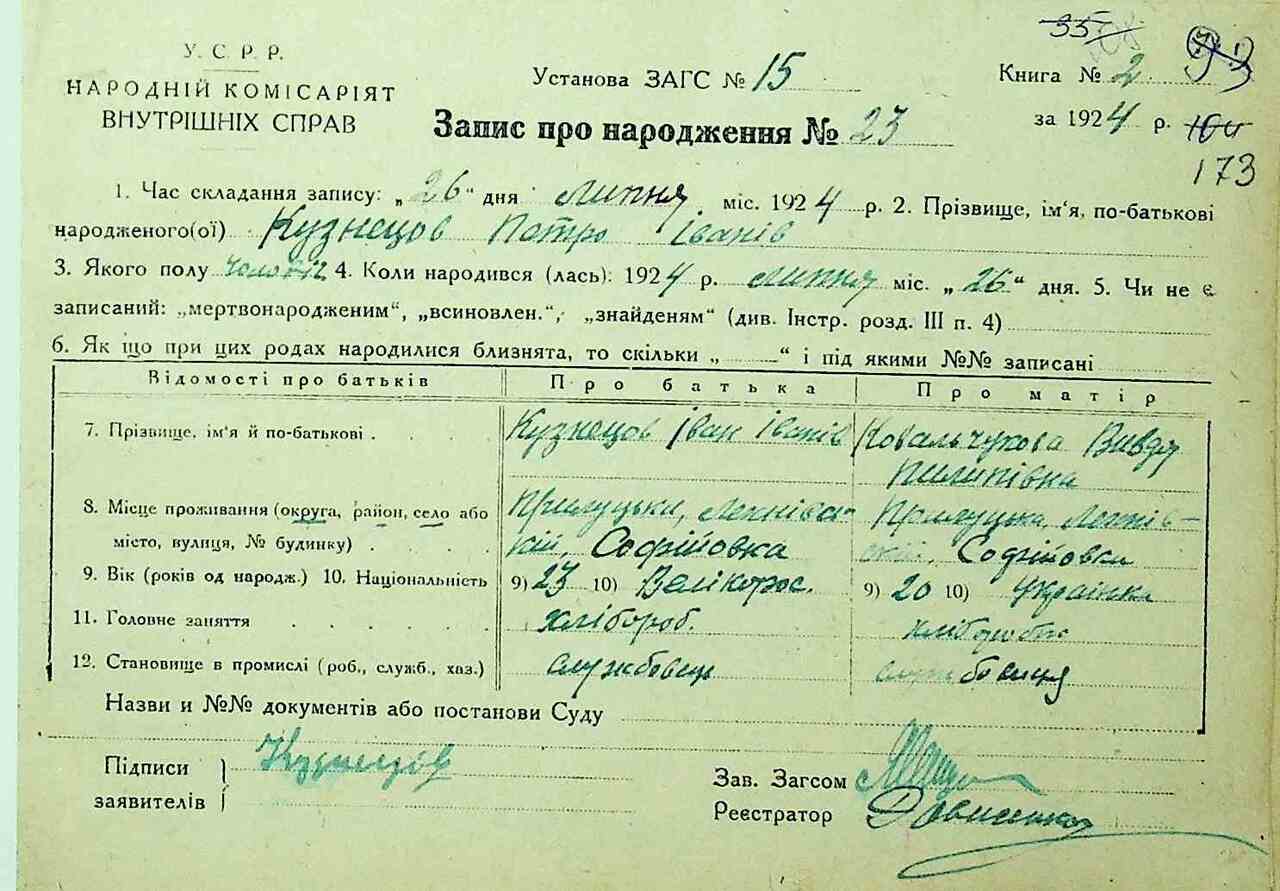 У. С. Р. Р.
НАРОДНІЙ КОМІСАРІЯТ
ВНУТРІШНІХ СПРАВ
Установа ЗАГС № 15
Запис про народження № 23
35
Книга № 2
за 1924 р.
173
1. Час складання запису: „26“ дня Липня міс. 1924 р. 2. Прізвище, ім‘я, по-батькові
народженого(ої) Кузнецов Петро Іванів
3. Якого полу 4. Коли народився (лась): 1924 р. липня міс. „26“ дня. 5. Чи не є
записаний: „мертвонародженим“, „всиновлен.“, „знайденям“ (див. Інстр. розд. III п. 4)
6. Як що при цих родах народилися близнята, то скільки „ “ і під якими №№ записані
Відомості про батьків Про батька Про матір
7. Прізвище, ім‘я й по-батькові . Кузнецов Іван Іванів Ковальчукова
Пилипівка
8. Місце проживання (округа, район, село або
місто, вулиця, № будинку) . Софійовка Софійовка
9. Вік (років од народж.) 10. Національність 9) 23 10) Велікорос. 9) 20 10) Українка
11. Головне заняття хлібороб.
12. Становище в промислі (роб., служб., хаз.) службовець
Назви и №№ документів або постанови Суду
Підписи
заявителів
Кузнецов
Зав. Загсом
Реєстратор